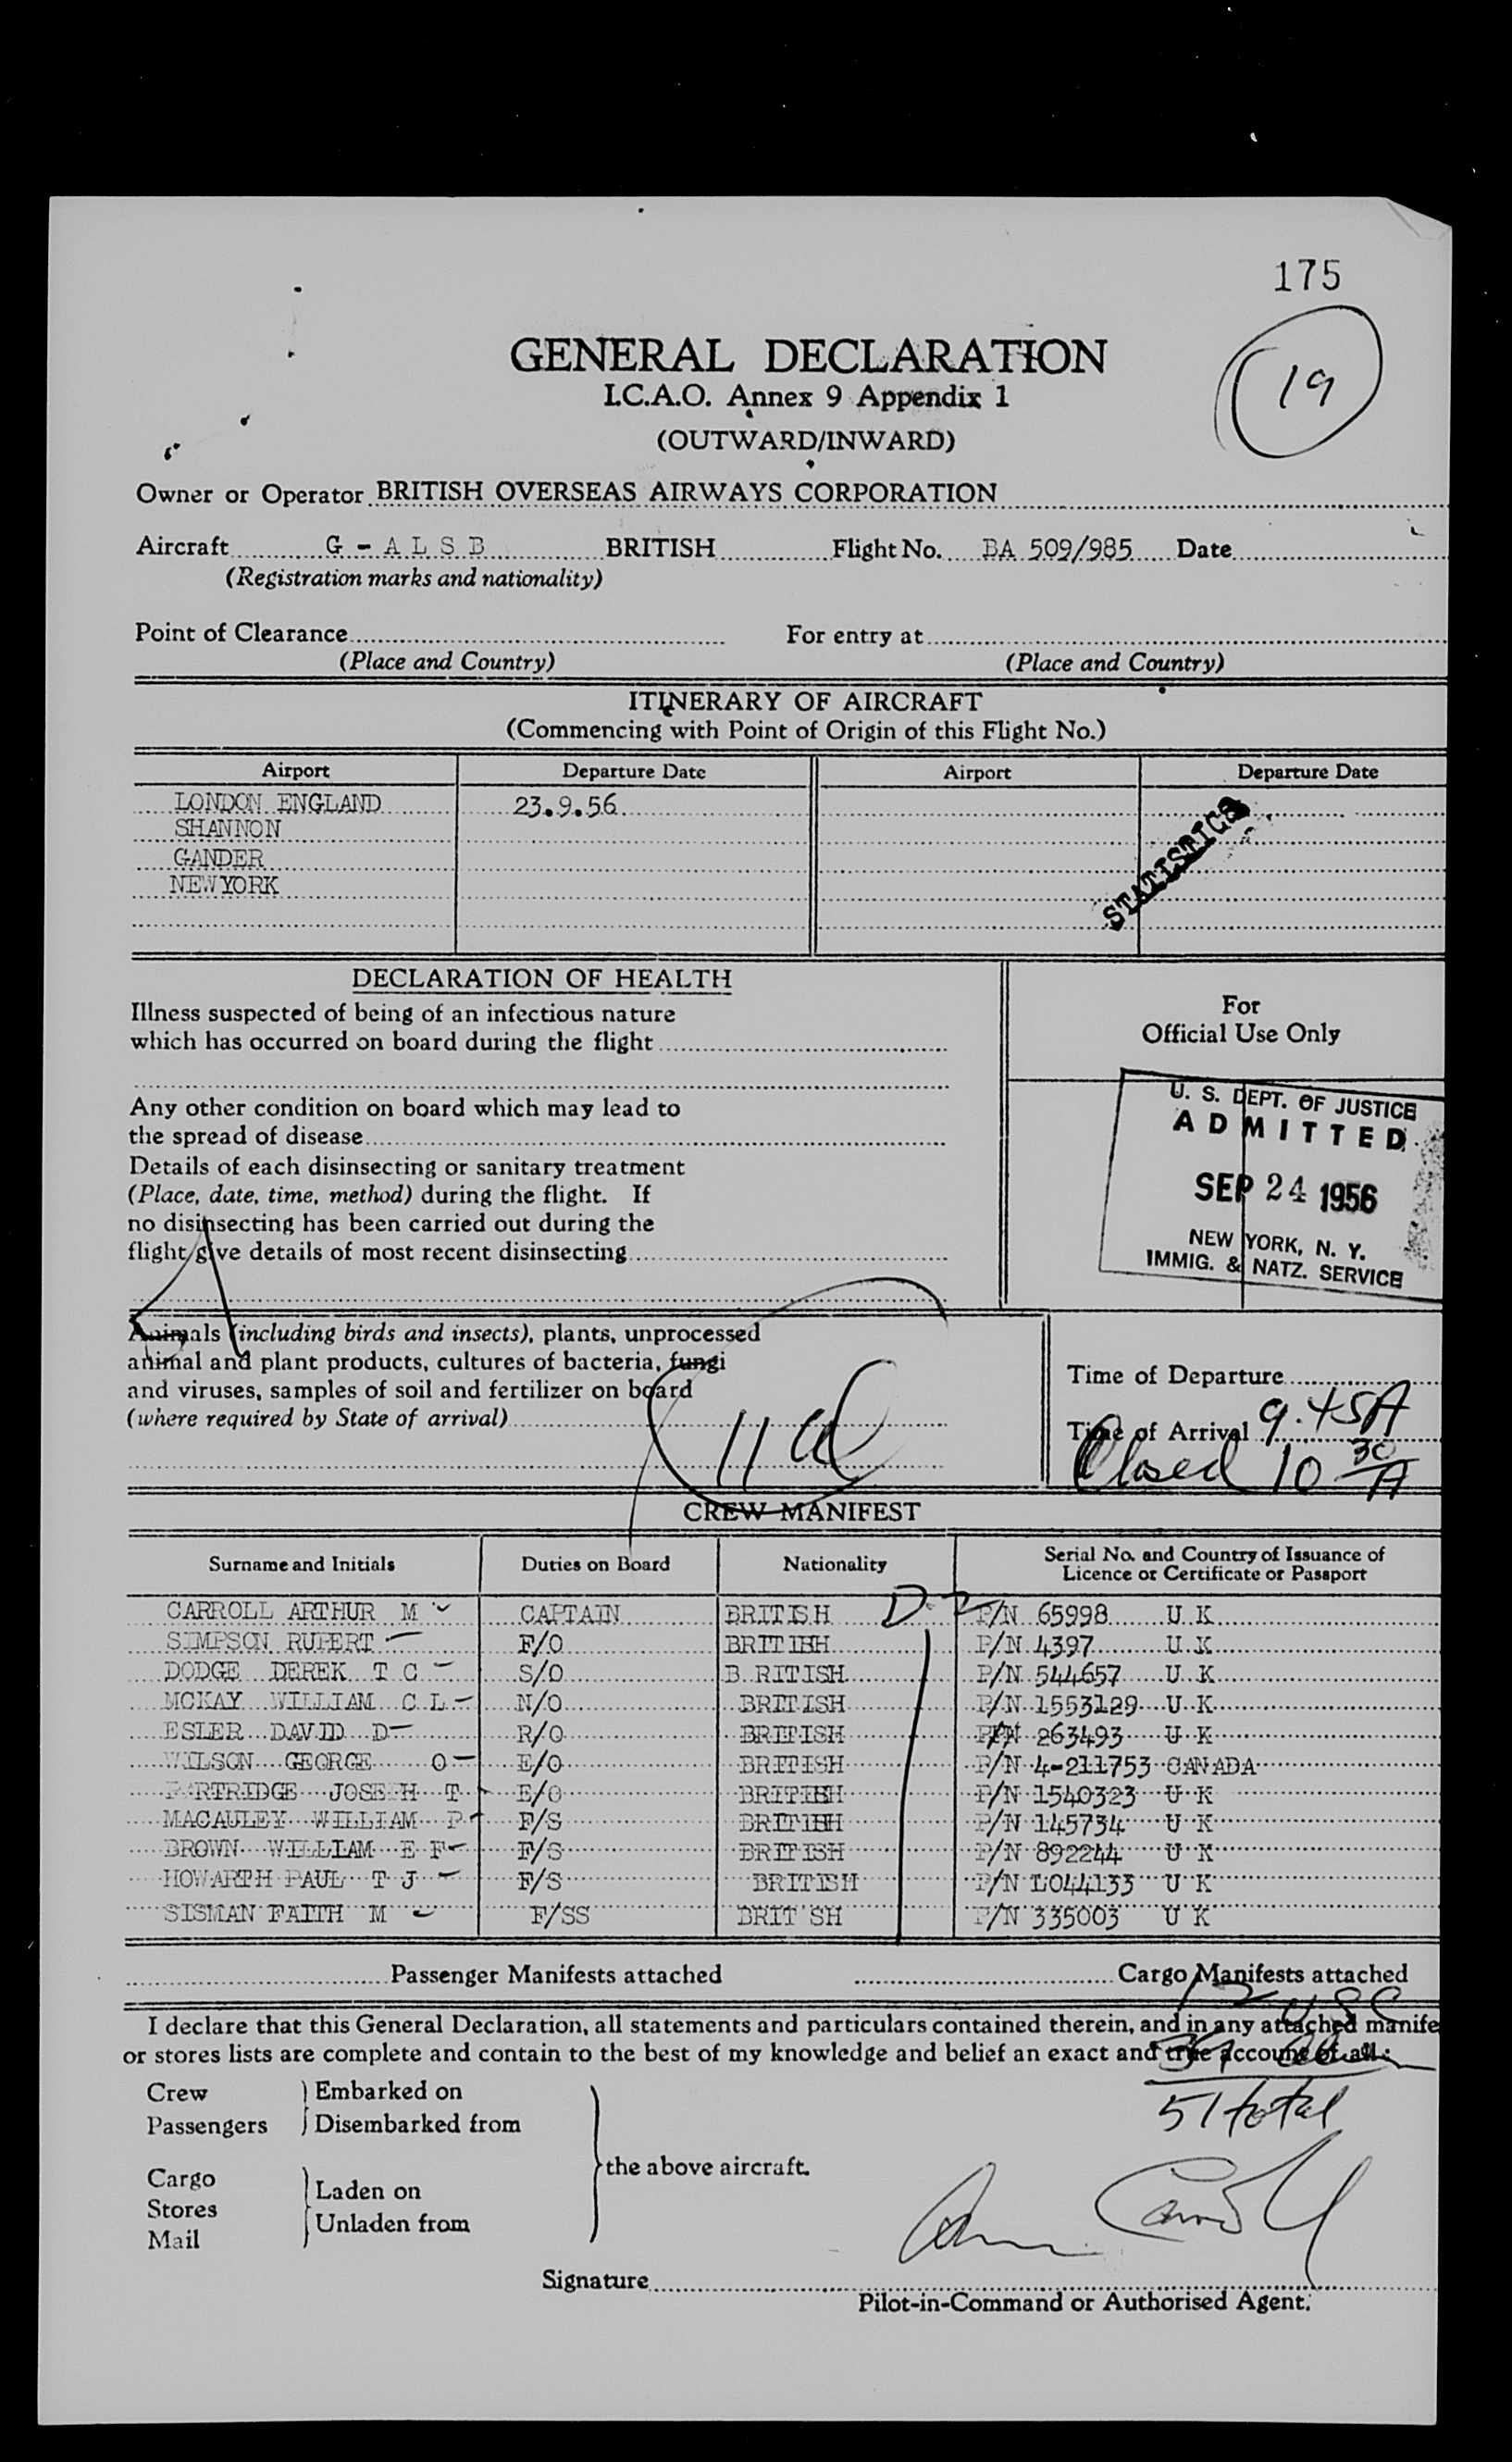 175
19
GENERAL DECLARATION
I.C.A.O. Annex 9 Appendix 1
(OUTWARD/INWARD)
Owner or Operator BRITISH OVERSEAS AIRWAYS CORPORATION
Aircraft G - A L S B BRITISH Flight No. BA 509/985 Date
(Registration marks and nationality)
Point of Clearance For entry at
(Place and Country) (Place and Country)
ITINERARY OF AIRCRAFT
(Commencing with Point of Origin of this Flight No.)
Airport Departure Date Airport Departure Date
LONDON ENGLAND 23.9.56
SHANNON
GANDER
NEW YORK
STATISTICS
DECLARATION OF HEALTH
Illness suspected of being of an infectious nature
which has occurred on board during the flight
Any other condition on board which may lead to
the spread of disease
Details of each disinsecting or sanitary treatment
(Place, date, time, method) during the flight. If
no disinsecting has been carried out during the
flight give details of most recent disinsecting
For
Official Use Only
U. S. DEPT. OF JUSTICE
ADMITTED
SEP 24 1956
NEW YORK, N. Y.
IMMIG. & NATZ. SERVICE
Animals (including birds and insects), plants, unprocessed
animal and plant products, cultures of bacteria, fungi
and viruses, samples of soil and fertilizer on board
(where required by State of arrival)
Time of Departure
Time of Arrival 9.45A
Closed 10 30/A
CREW MANIFEST
Surname and Initials Duties on Board Nationality Serial No. and Country of Issuance of Licence or Certificate or Passport
CARROLL ARTHUR M CAPTAIN BRITISH P/N 65998 U K
SIMPSON RUPERT F/O BRITIHH P/N 4397 U K
DODGE DEREK T C S/O B RITISH P/N 544657 U K
MCKAY WILLIAM C L N/O BRITISH P/N 1553129 U K
ESLER DAVID D R/O BRITISH 263493 U K
WILSON GEORGE O E/O BRITISH P/N 4-211753 CANADA
PARTRIDGE JOSE H T E/O BRITISH P/N 1540323 U K
MACAULEY WILLIAM P F/S BRITIHH P/N 145734 U K
BROWN WILLIAM E F F/S BRITISH P/N 892244 U K
HOWARTH PAUL T J F/S BRITISH P/N L044133 U K
SISMAN FAITH M F/SS BRIT SH P/N 335003 U K
Passenger Manifests attached Cargo Manifests attached
12 USC
I declare that this General Declaration, all statements and particulars contained therein, and in any attached manife
or stores lists are complete and contain to the best of my knowledge and belief an exact and true account of all:
51 total
Crew Embarked on
Passengers Disembarked from
the above aircraft.
Cargo Laden on
Stores
Mail Unladen from
Signature
Pilot-in-Command or Authorised Agent.